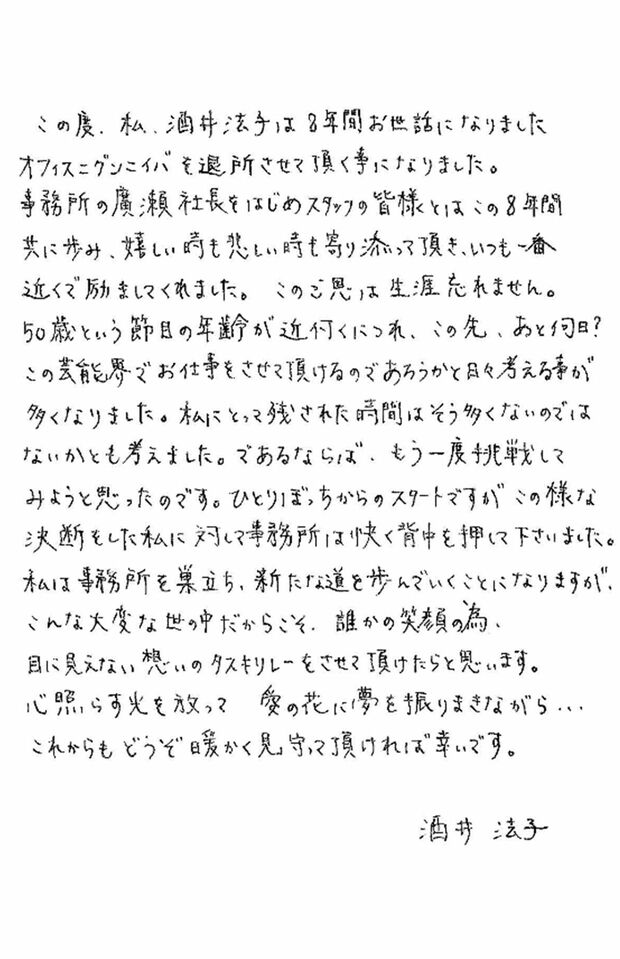 この度、私、酒井法子は8年間お世話になりました
オフィスニグンニイバを退所させて頂く事になりました。
事務所の廣瀬社長をはじめスタッフの皆様とはこの8年間
共に歩み、嬉しい時も悲しい時も寄り添って頂き、いつも一番
近くで励ましてくれました。 このご恩は生涯忘れません。
50歳という節目の年齢が近付くにつれ、この先、あと何日?
この芸能界でお仕事をさせて頂けるのであろうかと日々考える事が
多くなりました。私にとって残された時間はそう多くないのでは
ないかとも考えました。であるならば、もう一度挑戦して
みようと思ったのです。ひとりぼっちからのスタートですがこの様な
決断をした私に対して事務所は快く背中を押して下さいました。
私は事務所を巣立ち、新たな道を歩んでいくことになりますが、
こんな大変な世の中だからこそ、誰かの笑顔の為、
目に見えない想いのタスキリレーをさせて頂けたらと思います。
心照らす光を放って 愛の花に夢を振りまきながら...
これからもどうぞ暖かく見守って頂ければ幸いです。
酒井 法子